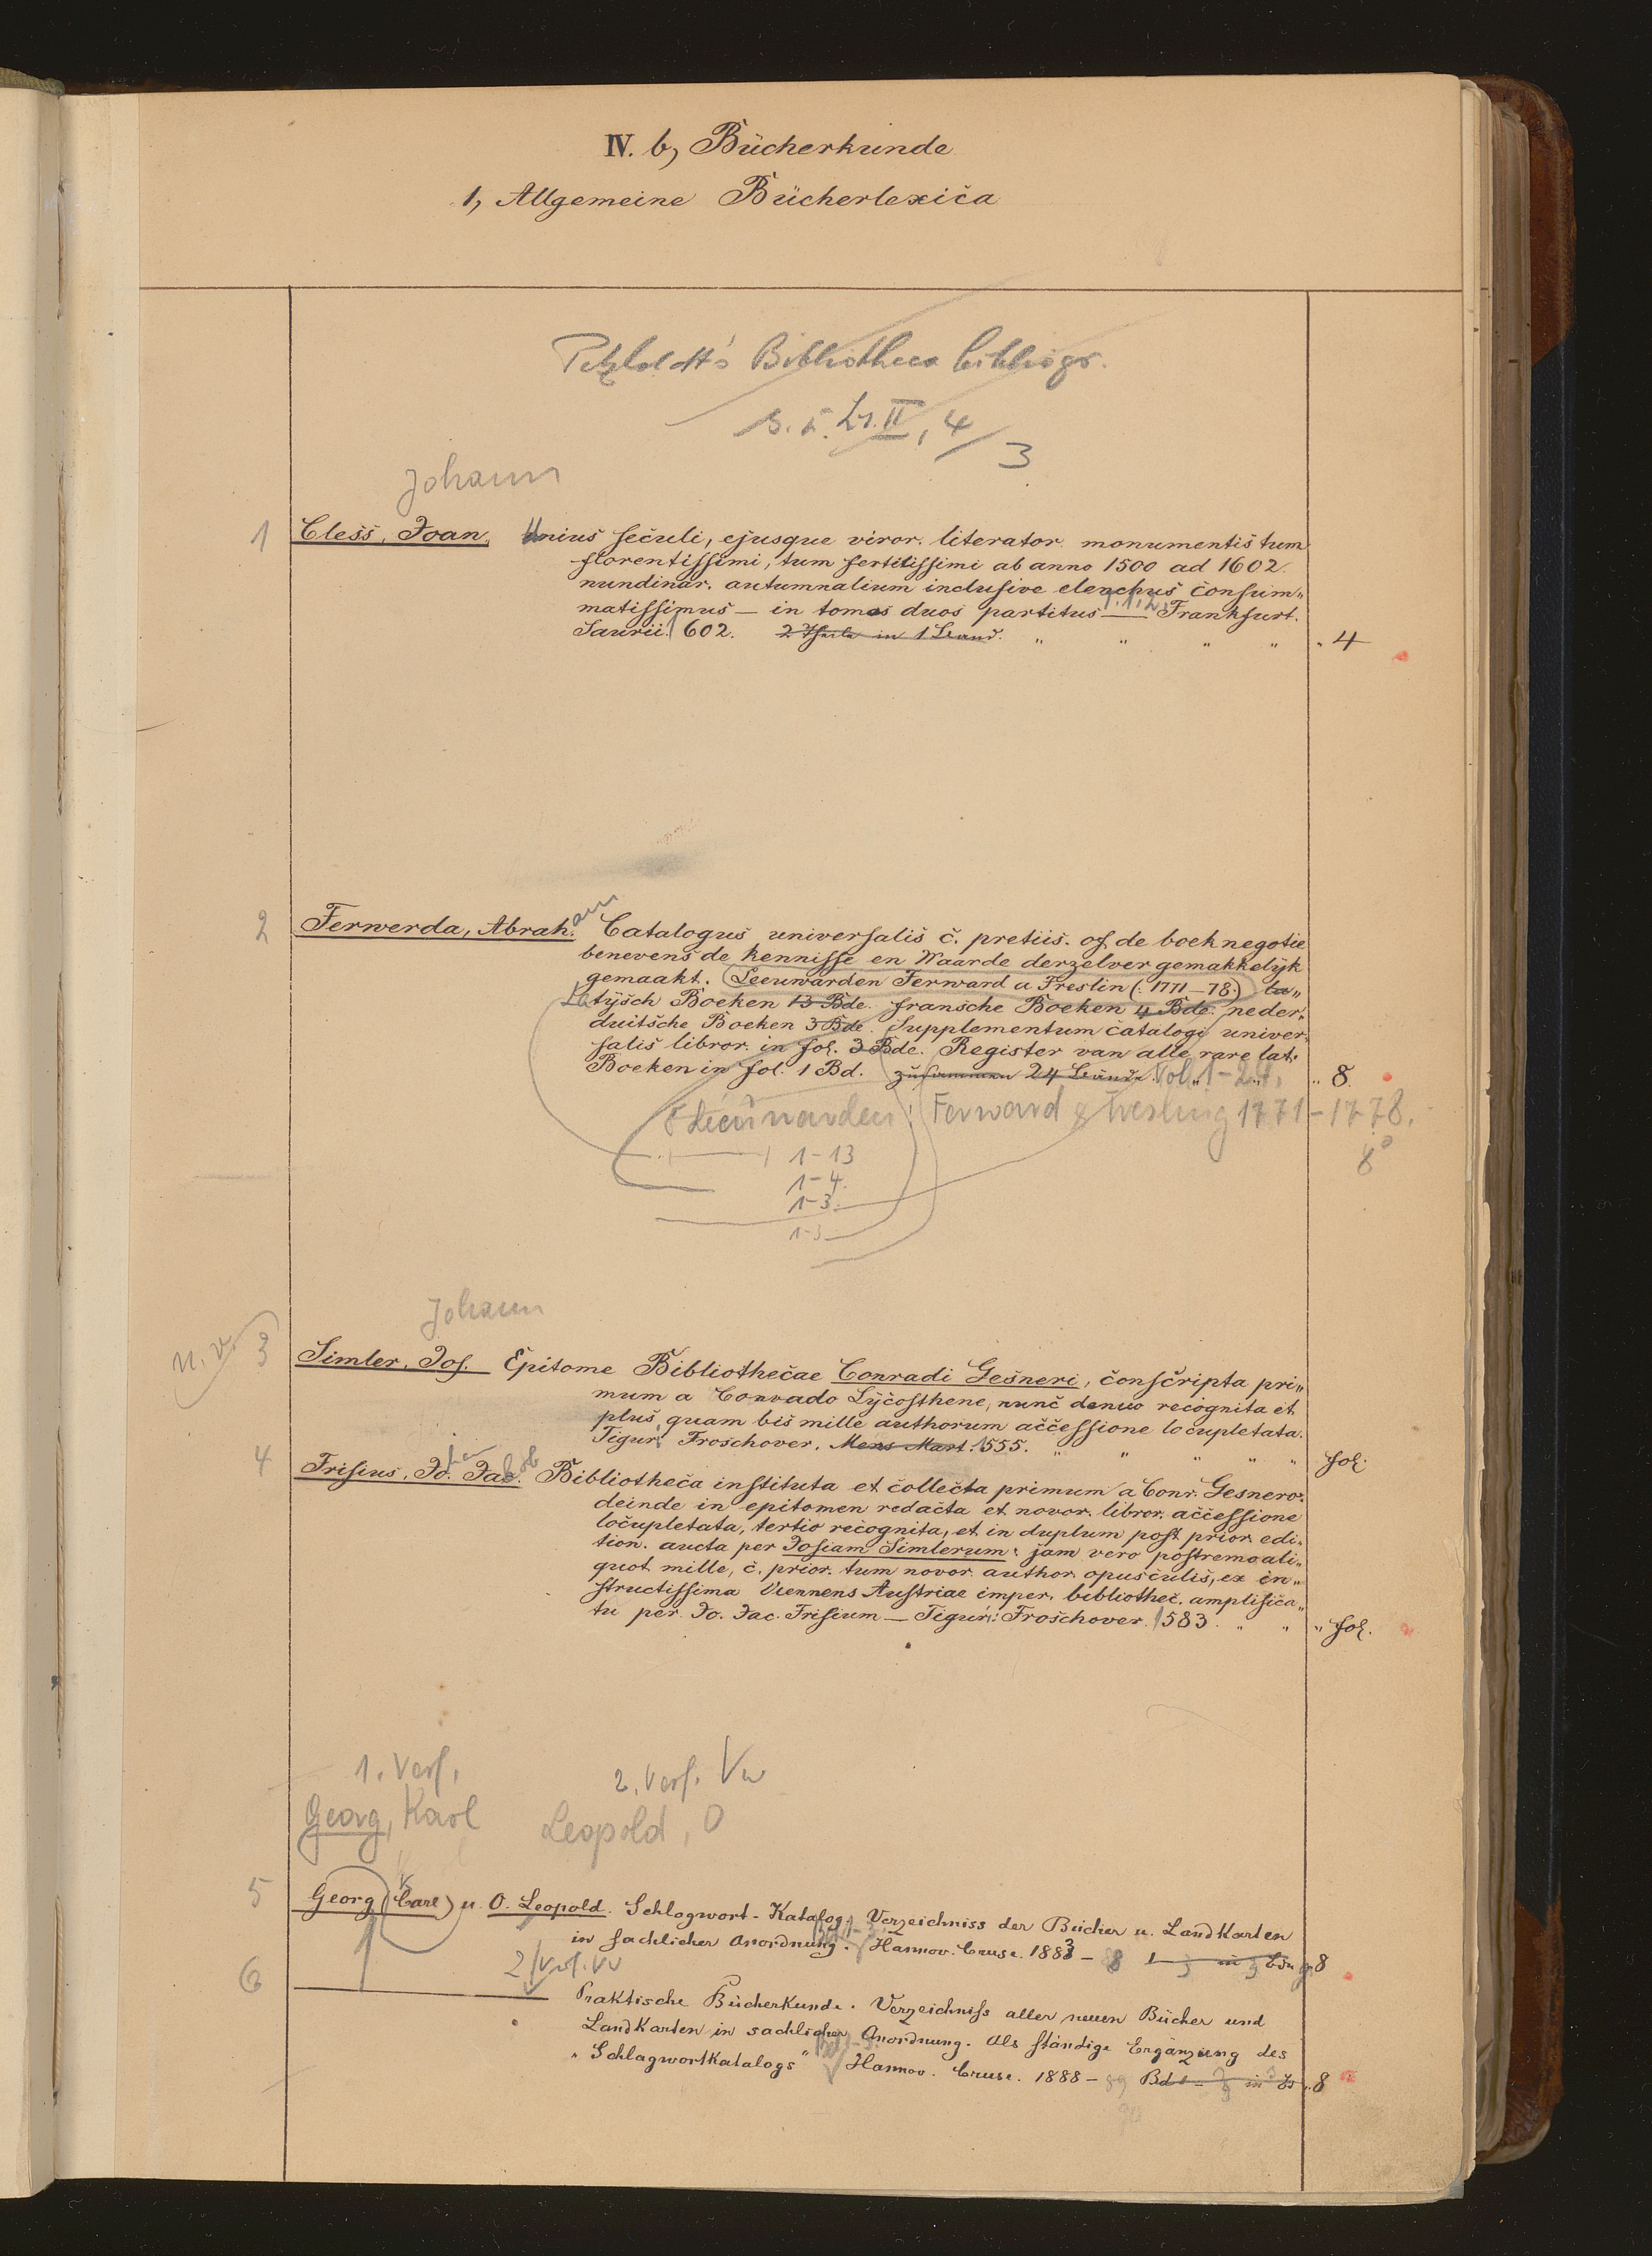 IV. b, Bücherkunde
1, Allgemeine Bücherlexica
Petzholdt's Bibliotheca bibliogr.
s. L. II, 4
3
Johann
1 Cless, Joan. Unius seculi, ejusque viror. literator. monumentis tum
florentissimi, tum fertilissimi ab anno 1500 ad 1602.
nundinar. autumnalium inclusive elenchus consum„
matissimus — in tomos duos partitus — T. 1. 2. Frankfurt.
Saurii. 1602. 2 Theile in 1 Band. „ „ „ „ „ 4
2 Ferwerda, Abraham Catalogus universalis c. pretiis. of de boek negotie
benevens de kennisse en Waarde derzelver gemakkelijk
gemaakt. (Leeuwarden Ferward a Treslin (: 1771–78:) la„
Latijsch Boeken 13 Bde. fransche Boeken 4 Bde. neder„
duitsche Boeken 3 Bde. Supplementum catalogi univer„
salis libror. in fol. 3 Bde. Register van alle rare lat.
Boeken in fol. 1 Bd. zusammen 24 Bände. Vol. 1–24. „ 8.
Leeuwarden: Ferward & Tresling 1771–1778.
8°
1–13
1–4.
1–3.
1–3
Johann
n. v. 3 Simler, Jos. Epitome Bibliothecae Conradi Gesneri, conscripta pri„
mum a Conrado Lycosthene, nunc denuo recognita et
plus quam bis mille authorum accessione locupletata.
Tiguri Froschover. Mens Mart. 1555. „ „ „ „ „ fol.
4 Frisius, Jo. Jacob Bibliotheca instituta et collecta primum a Conr. Gesnero.
deinde in epitomen redacta et novor. libror. accessione
locupletata, tertio recognita, et in duplum post prior. edi„
tion. aucta per Josiam Simlerum: jam vero postremo ali„
quot mille, c. prior. tum novor. author. opusculis, ex in„
structissima Viennens Austriae imper. bibliothec. amplifica„
tu per. Jo. Jac. Frisium — Tiguri: Froschover. 1583. „ „ „ fol.
1. Verf. 2. Verf. Vw
Georg, Karl Leopold, O
5 Georg (Carl) u. O. Leopold. Schlagwort-Katalog. Verzeichniss der Bücher u. Landkarten
in sachlicher Anordnung. Hannov. Cruse. 1883 – 8
2. Verf. Vw
6 ——— Praktische Bücherkunde. Verzeichniss aller neuen Bücher und
Landkarten in sachlicher Anordnung. Als ständige Ergänzung des
„Schlagwortkatalogs" Hannov. Cruse. 1888 – 89 „ 8